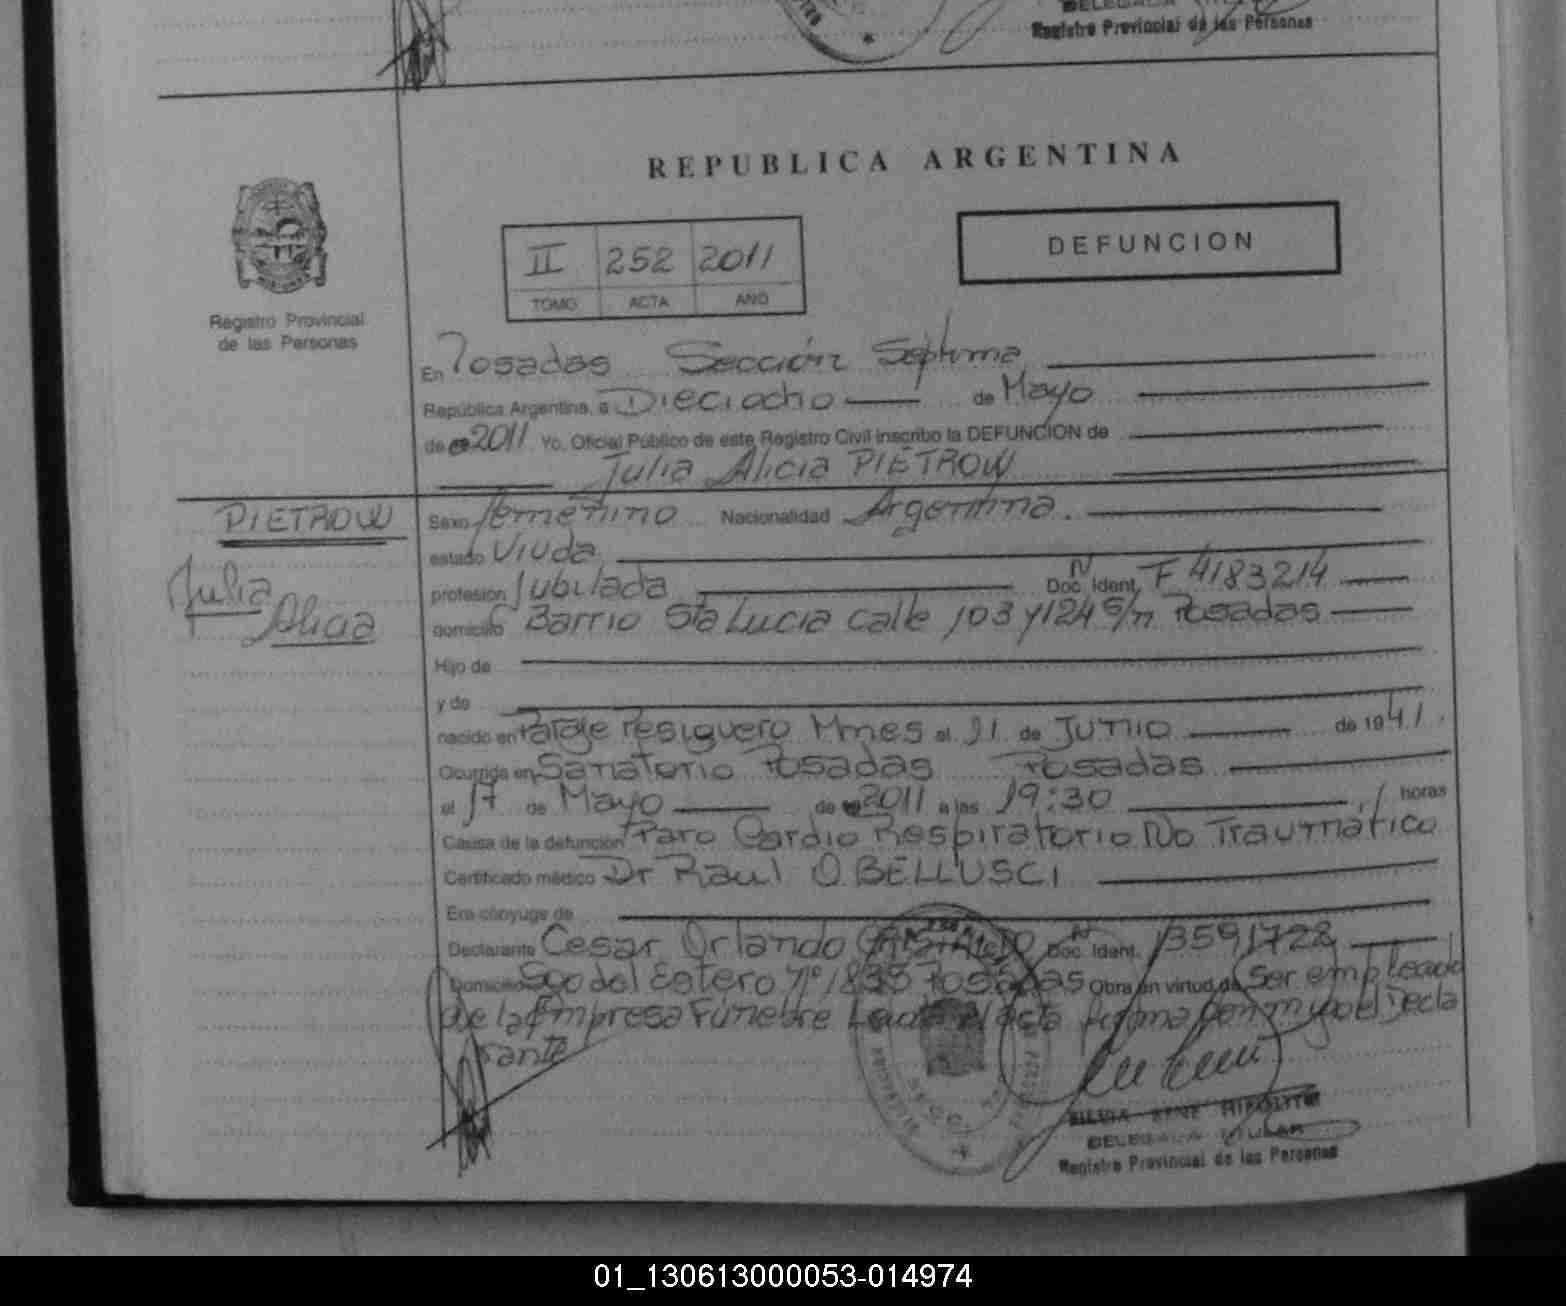 Registro Provincial de las Personas
REPUBLICA ARGENTINA
II 252 2011
TOMO ACTA ANO
DEFUNCION
Registro Provincial
de las Personas
En Posadas Sección Septima
República Argentina, a Dieciocho de Mayo
de 2011 Yo, Oficial Público de este Registro Civil inscribo la DEFUNCION de
Julia Alicia PIETROW
PIETROW
Julia
Alicia
Sexo femenino Nacionalidad Argentina.
estado Viuda
profesión Jubilada Doc. Ident. N F 4183214
domicilio Barrio Sta Lucia calle 103 y 124 s/n Posadas
Hijo de
y de
nacido en Paraje Mnes el 21 de Junio de 1941.
Ocurrida en Sanatorio Posadas Posadas
el 17 de Mayo de 2011 a las 19:30 horas
Causa de la defunción Paro Cardio Respiratorio No Traumático
Certificado médico Dr Raul O BELLUSCI
Era cónyuge de
Declarante Cesar Orlando Doc. Ident. N 13591728
Domicilio Sgo del Estero Nº 1835 Posadas Obra en virtud de Ser empleado
de la Empresa Fúnebre Leida el acta firma conmigo el Decla
rante
DELEGADA TITULAR
Registro Provincial de las Personas
01_130613000053-014974